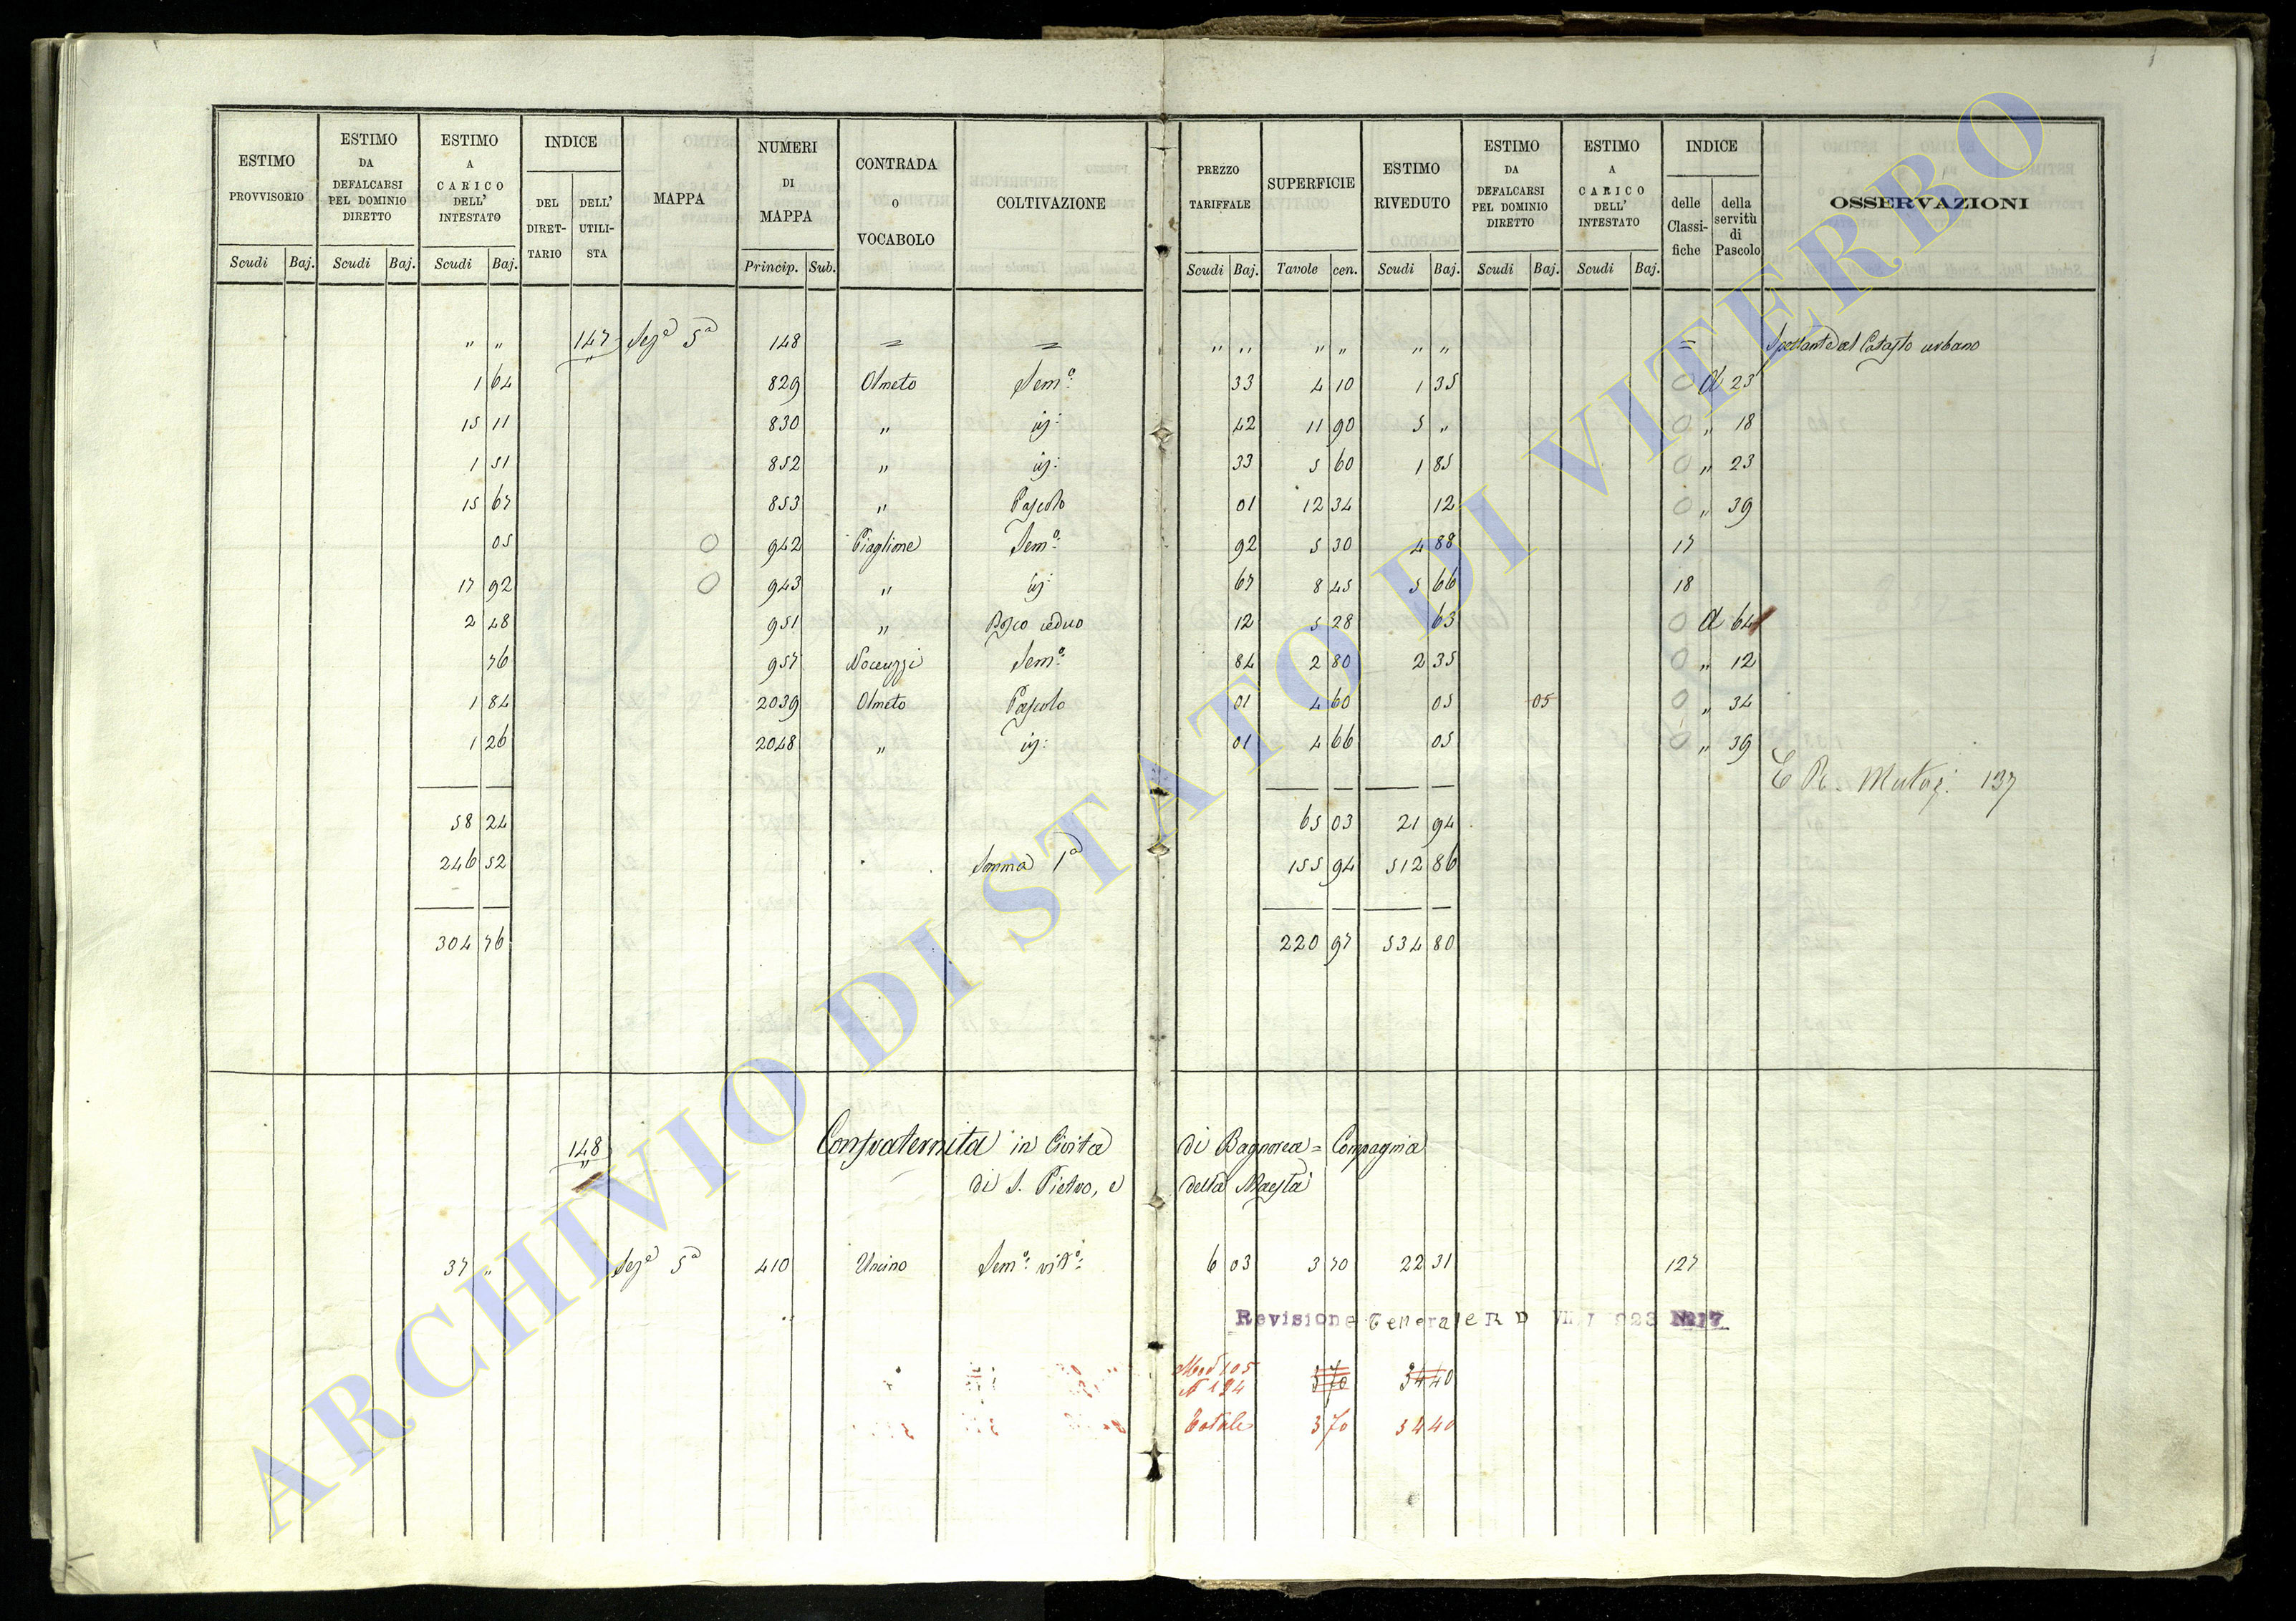 ESTIMO PROVVISORIO | ESTIMO DA DEFALCARSI PEL DOMINIO DIRETTO | ESTIMO A CARICO DELL' INTESTATO | INDICE DEL DIRET-TARIO | DELL' UTILI-STA | MAPPA | NUMERI DI MAPPA | CONTRADA O VOCABOLO | COLTIVAZIONE | PREZZO TARIFFALE | SUPERFICIE | ESTIMO RIVEDUTO | ESTIMO DA DEFALCARSI PEL DOMINIO DIRETTO | ESTIMO A CARICO DELL' INTESTATO | INDICE delle Classi-fiche | della servitù di Pascolo | OSSERVAZIONI
Scudi Baj. | Scudi Baj. | Scudi Baj. | Princip. Sub. | Scudi Baj. | Tavole cen. | Scudi Baj. | Scudi Baj. | Scudi Baj.
" " 147 Sez.e 5a 148 = = " " " " " " = Spettante al Catasto urbano
1 64 829 Olmeto Sem.o: 33 4 10 1 35 0 a 23
15 11 830 " id: 42 11 90 5 " 0 " 18
1 51 852 " id: 33 5 60 1 85 0 " 23
15 67 853 " Pascolo 01 12 34 12 0 " 39
05 0 942 Piaglione Sem.o: 92 5 30 4 88 17
17 92 0 943 " id: 67 8 45 5 66 18
2 48 951 " Bosco ceduo 12 5 28 63 0 a 64
76 957 Nocenzzi Sem.o: 84 2 80 2 35 0 " 12
1 84 2039 Olmeto Pascolo 01 4 60 05 05 0 " 34
1 26 2048 " id: 01 4 66 05 0 " 39
Mutaz: 137
58 24 65 03 21 94
246 52 Somma 1a 155 94 512 86
304 76 220 97 534 80
148 Confraternita in Civita di Bagnorea = Compagnia
di S. Pietro, e della Maestà
37 " Sez.e 5a 410 Uncino Sem.o: vit.o: 6 03 3 70 22 31 127
Revisione Generale R D VII I 923 N.17
Mod 105
N 194 3 70 34 40
Totale 3 70 34 40
ARCHIVIO DI STATO DI VITERBO